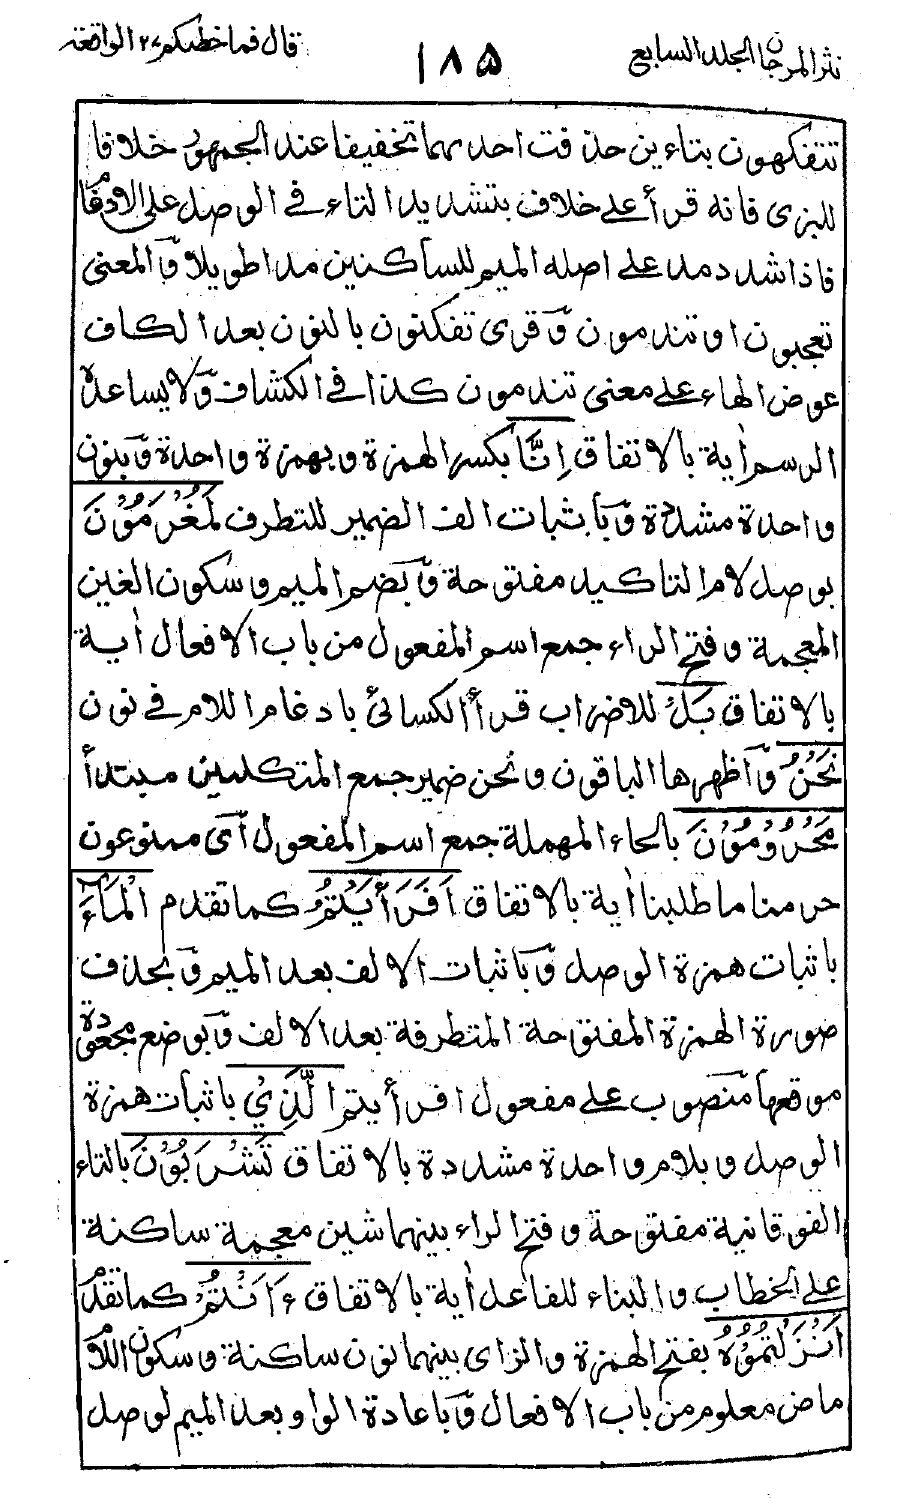 نثر المرجان الجلد السابع
١٨٥
قال فما خطبكم ٢٧ الواقعة
تتفكهون بتاءين حذفت احدىهما تخفيفا عند الجمهور خلافا
للبزى فانه قرأ على خلاف بتشديد التاء فى الوصل على الادغام
فاذا شدد مد على اصله الميم للساكنين مدا طويلا وّ المعنى
تعجبون او تندمون وّ قرى تفكنون بالنون بعد الكاف
عوض الهاء على معنى تندمون كذا فى الكشاف وّ لا يساعده
الرسم أية بالاتفاق اِنَّا بكسر الهمزة وبهمزة واحدة وّ بنون
واحدة مشددة وّ بأثبات الف الضمير للتطرف لَمُغْرَمُوْنَ
بوصل لام التاكيد مفتوحة وّ بضم الميم وسكون الغين
المعجمة وفتح الراء جمع اسم المفعول من باب الافعال أية
بالاتفاق بَلْ للاضراب قرأ الكسائى بادغام اللام فى نون
نَحْنُ وّ أظهرها الباقون ونحن ضمير جمع المتكلمين مبتدأ
مَحْرُوْمُوْنَ بالحاء المهملة جمع اسم المفعول أى ممنوعون
حرمنا ما طلبنا أية بالاتفاق اَفَرَأَيْتُمُ كما تقدم الْمَآءَ
باثبات همزة الوصل وّ باثبات الالف بعد الميم وّ بحذف
صورة الهمزة المفتوحة المتطرفة بعد الالف وّ بوضع مجعودة
موقعها منصوب على مفعول افرأيتم الَّذِيْ باثبات همزة
الوصل وبلام واحدة مشددة بالاتفاق تَشْرَبُوْنَ بالتاء
الفوقانية مفتوحة وفتح الراء بينهما شين معجمة ساكنة
على الخطاب والبناء للفاعل أية بالاتفاق ءَاَنْتُمْ كما تقدم
اَنْزَلْتُمُوْهُ بفتح الهمزة والزاى بينهما نون ساكنة وسكون اللام
ماض معلوم من باب الافعال وّ باعادة الواو بعد الميم لوصل